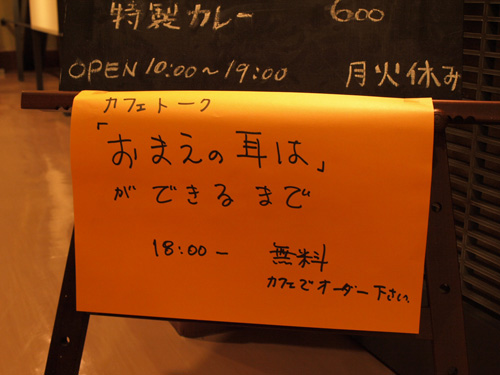 特製カレー 600
OPEN 10:00～19:00 月火休み
カフェトーク
「おまえの耳は」
ができるまで
18:00ー 無料
カフェでオーダー下さい。